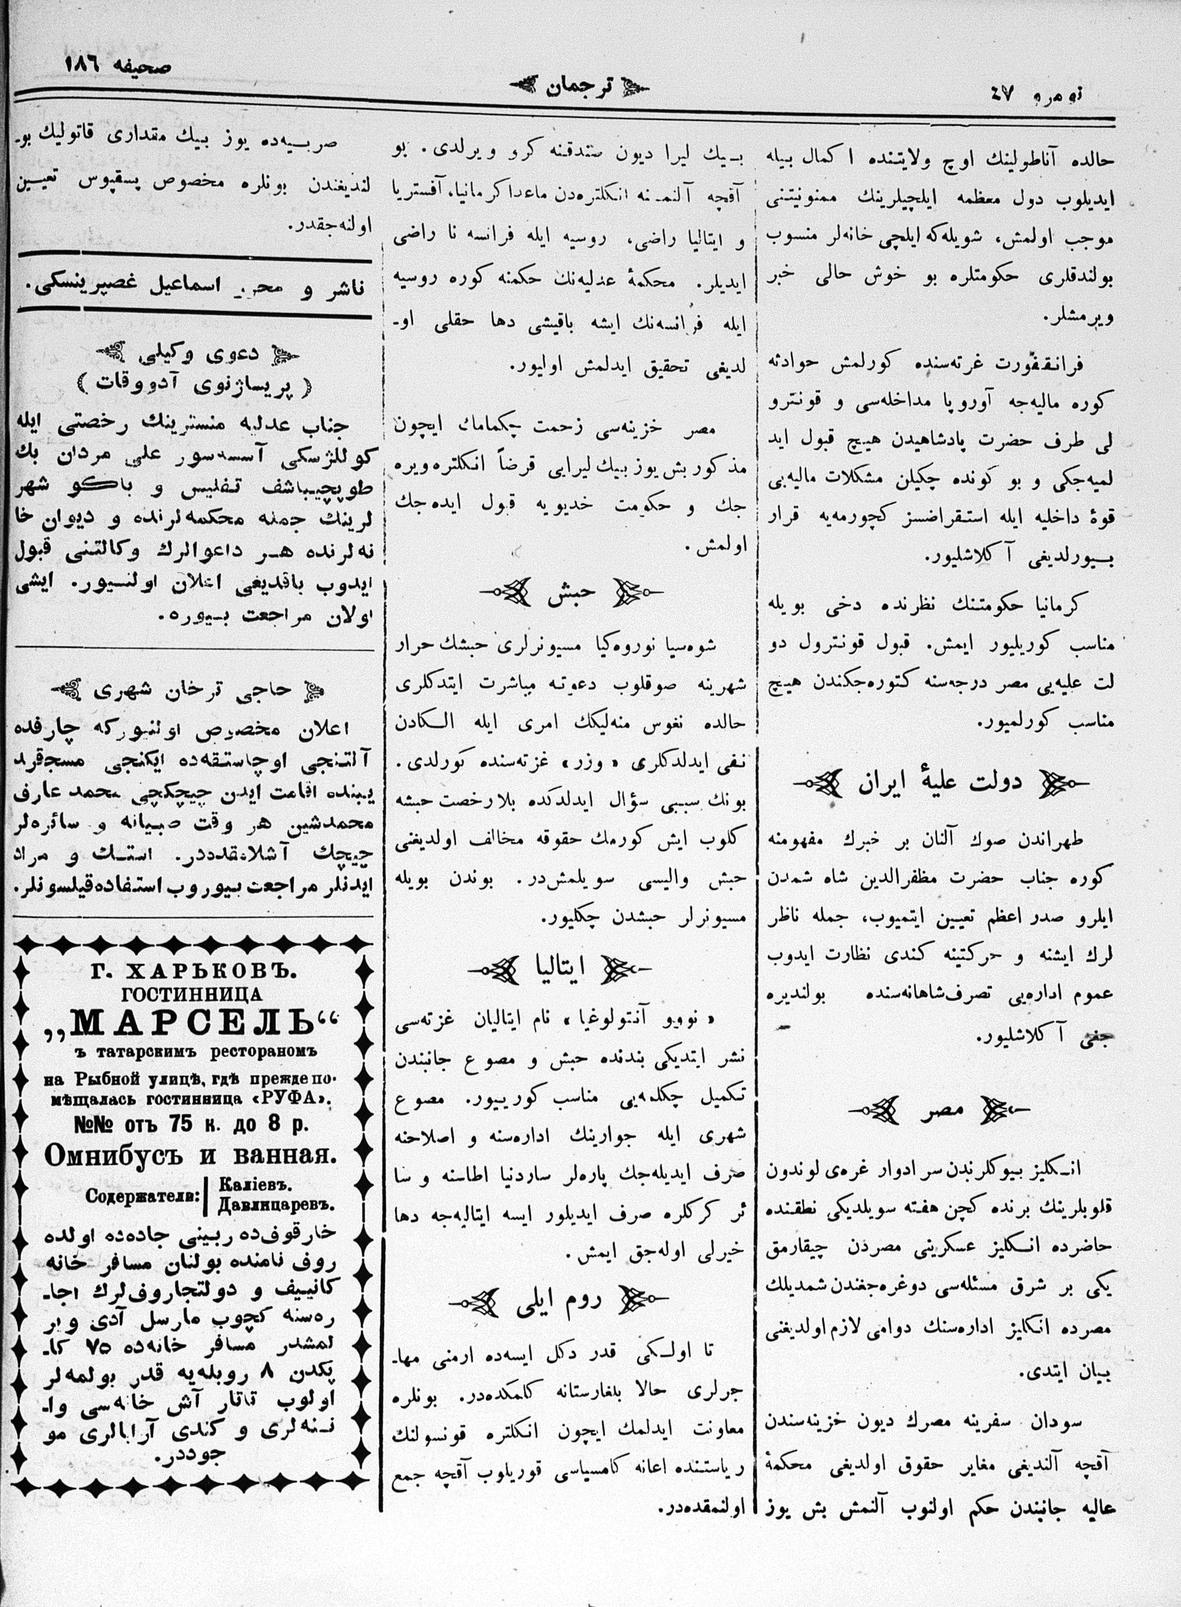 نومرو ٤٧
ترجمان
صحیفه ١٨٦
حالده آناطولینك اوچ ولایتنده اكمال بیله
ایدیلوب دول معظمه ایلچیلرینك ممنونیتنی
موجب اولمش، شویله‌كه ایلچی خانه‌لر منسوب
بولندقلری حكومتلره بو خوش حالی خبر
ویرمشلر.
فرانقفورت غزته‌سنده كورلمش حوادثه
كوره مالیه‌جه آوروپا مداخله‌سی و قونترو
لی طرف حضرت پادشاهیدن هیچ قبول اید
لمیه‌جكی و بو كونده چكیلن مشكلات مالیه‌یی
قوهٔ داخلیه ایله استقراضسز كچورمه‌یه قرار
بیورلدیغی آكلاشلیور.
كرمانیا حكومتنك نظرنده دخی بویله
مناسب كوریلیور ایمش. قبول قونترول دو
لت علیه‌یی مصر درجه‌سنه كتوره‌جكندن هیچ
مناسب كورلمیور.
دولت علیهٔ ایران
طهراندن صوك آلنان بر خبرك مفهومنه
كوره جناب حضرت مظفرالدین شاه شمدن
ایلرو صدر اعظم تعیین ایتمیوب، جمله ناظر
لرك ایشنه و حركتینه كندی نظارت ایدوب
عموم اداره‌یی تصرف شاهانه‌سنده بولندیره
جغی آكلاشلیور.
مصر
انكلیز بیوكلرندن سر ادوار غره‌ی لوندون
قلوبلرینك برنده كچن هفته سویلدیكی نطقنده
حاضرده انكلیز عسكرینی مصردن چیقارمق
یكی بر شرق مسئله‌سی دوغره‌جغندن شمدیلك
مصرده انكلیز اداره‌سنك دوامی لازم اولدیغنی
بیان ایتدی.
سودان سفرینه مصرك دیون خزینه‌سندن
آقچه آلندیغی مغایر حقوق اولدیغی محكمهٔ
عالیه جانبندن حكم اولنوب آلنمش بش یوز
بیك لیرا دیون صندقینه كرو ویرلدی. بو
آقچه آلنمسنه انكلتره‌دن ماعدا كرمانیا، آفستریا
و ایتالیا راضی، روسیه ایله فرانسه نا راضی
ایدیلر. محكمهٔ عدلیه‌نك حكمنه كوره روسیه
ایله فرانسه‌نك ایشه باقیشی دها حقلی او-
لدیغی تحقیق ایدلمش اولیور.
مصر خزینه‌سی زحمت چكمامك ایچون
مذكور بش یوز بیك لیرایی قرضاً انكلتره ویره
جك و حكومت خدیویه قبول ایده‌جك
اولمش.
حبش
شوه‌سیا نوروه‌كیا مسیونرلری حبشك حرار
شهرینه صوقلوب دعوته مباشرت ایتدكلری
حالده نغوس منه‌لیكك امری ایله الكادن
نفی ایدلدكلری «وزر» غزته‌سنده كورلدی.
بونك سببی سؤال ایدلدكده بلا رخصت حبشه
كلوب ایش كورمك حقوقه مخالف اولدیغنی
حبش والیسی سویلمش‌در. بوندن بویله
مسیونرلر حبشدن چكلیور.
ایتالیا
«نووو آنتولوغیا» نام ایتالیان غزته‌سی
نشر ایتدیكی بندنده حبش و مصوع جانبندن
تكمیل چكلمه‌یی مناسب كوریور. مصوع
شهری ایله جوارینك اداره‌سنه و اصلاحنه
صرف ایدیله‌جك پاره‌لر ساردنیا اطاسنه و سا
ئر كركلره صرف ایدیلور ایسه ایتالیه‌جه دها
خیرلی اوله‌جق ایمش.
روم ایلی
تا اولكی قدر دكل ایسه‌ده ارمنی مها-
جرلری حالا بلغارستانه كلمكده‌در. بونلره
معاونت ایدلمك ایچون انكلتره قونسولنك
ریاستنده اعانه كامسیاسی قوریلوب آقچه جمع
اولنمقده‌در.
صربیه‌ده یوز بیك مقداری قاتولیك بو-
لندیغندن بونلره مخصوص پسقپوس تعیین
اولنه‌جقدر.
ناشر و محرر اسماعیل غصپرینسكی.
دعوی وكیلی
(پریساژنوی آدووقات)
جناب عدلیه منسترینك رخصتی ایله
كوللژسكی آسسه‌سور علی مردان بك
طوپچیباشف تفلیس و باكو شهر
لرینك جمله محكمه‌لرنده و دیوان خا
نه‌لرنده هر داعوالرك وكالتنی قبول
ایدوب باقدیغی اعلان اولنیور. ایشی
اولان مراجعت بیوره.
حاجی ترخان شهری
اعلان مخصوص اولنیوركه چارفده
آلتنجی اوچاستقه‌ده ایكنجی مسجد قرب
یبنده اقامت ایدن چیچكچی محمد عارف
محمدشین هر وقت صبیانه و سائره‌لر
چیچك آشلانمقده‌در. استك و مراد
ایدنلر مراجعت بیوروب استفاده قیلسونلر.
Г. ХАРЬКОВЪ.
ГОСТИННИЦА
„МАРСЕЛЬ“
ъ татарскимъ рестораномъ
на Рыбной улицѣ, гдѣ прежде по-
мѣщалась гостинница «РУФА».
№№ отъ 75 к. до 8 р.
Омнибусъ и ванная.
Содержатели: Каліевъ.
Давлицаревъ.
خارقوف‌ده ریبنی جاده‌ده اولده
روف نامنده بولنان مسافر خانه
كالییف و دولتجاروف‌لرك اجا-
ره‌سنه كچوب مارسل آدی ویر
لمشدر مسافر خانه‌ده ٧٥ كا-
پكدن ٨ روبله‌یه قدر بولمه‌لر
اولوب تاتار آش خانه‌سی وا-
ننه‌لری و كندی آرابالری مو
جوددر.